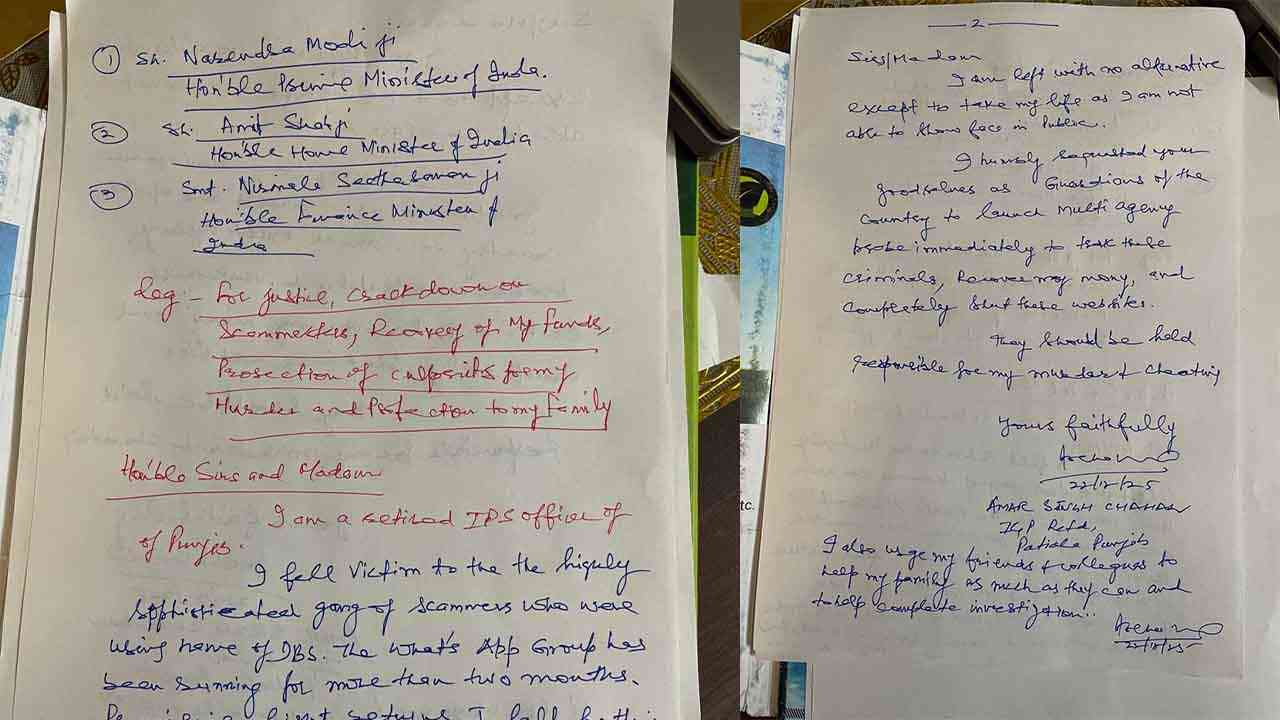 ① Sh. Narendra Modi ji
Hon'ble Prime Minister of India.
② Sh. Amit Shah ji
Hon'ble Home Minister of India
③ Smt. Nirmala Seetharaman ji
Hon'ble Finance Minister of
India
Reg:- For justice, Crackdown on
Scammesters, Recovery of My funds,
Prosection of culprits for my
Murder and Protection to my Family
Hon'ble Sirs and Madam
I am a retired IPS officer of
of Punjab.
I fell victim to the the highly
sophisticated gang of scammers who were
using name of DBS. The What's App Group has
been running for more than two months.
I fell
— 2 —
Sirs/Madam
I am left with no alternative
except to take my life as I am not
able to show face in Public.
I humbly requested your
goodselves as Guardians of the
Country to launch Multi agency
probe immediately to these
criminals, Recover my mony, and
Completely Shut these websites.
They should be held
responsible for my murder & cheating
Yours faithfully
22/12/25
AMAR SINGH CHAHAL
IGP Retd,
Patiala Punjab
I also urge my friends & collegues to
help my family as much as they can and
to help complete investigtion..
22/12/25
etc.